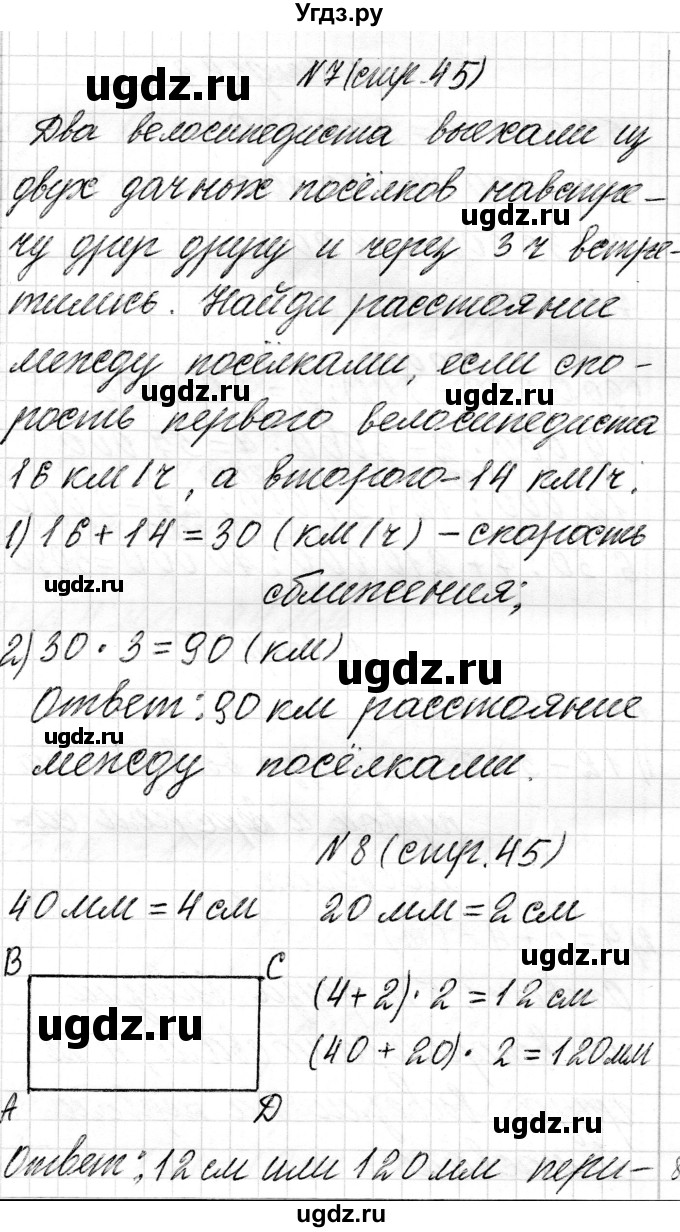 Угдз.ру
ugdz.ru
N7 (стр.45)
Два велосипедиста выехали из
двух дачных посёлков навстре-
ugdz.ru
чу друг другу и через 3 ч встре-
тились. Найди расстояние
между посёлками, если ско-
ugdz.ru
ugdz.ru
рость первого велосипедиста
16 км/ч, а второго - 14 км/ч.
1) 16 + 14 = 30 (км/ч) - скорость
ugdz.ru
сближения;
2) 30 · 3 = 90 (км)
ugdz.ru
Ответ: 90 км расстояние
ugdz.ru
между посёлками.
N8 (стр.45)
40 мм = 4 см 20 мм = 2 см
ugdz.ru
B C
(4 + 2) · 2 = 12 см
ugdz.ru
(40 + 20) · 2 = 120 мм
A D
ugdz.ru
Ответ: 12 см или 120 мм пери-
ugdz.ru